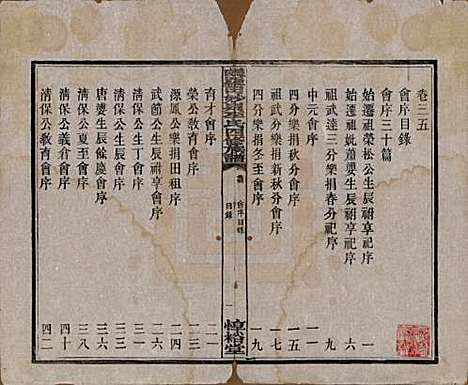 卷三五
會序目錄
會序三十篇
始遷祖榮松公生辰祔享祀序 一
始遷祖妣蕭婆生辰祔享祀序 六
祖武達三分樂捐春分祀序 九
中元會序 一一
四分樂捐秋分會序 一五
祖武分樂捐新秋分會序 一七
四分樂捐冬至會序 一九
會序目錄
目錄
惇裕堂
育才會序 二一
榮公教育會序 二三
源鳳公樂捐田租序 二四
武節公生辰祔享會序 二六
清保公生丁會序 三一
清保公生辰會序 三三
唐婆生辰餘慶會序 三六
清保公夏至會序 三八
清保公義倉會序 四十
清保公教育會序 四二